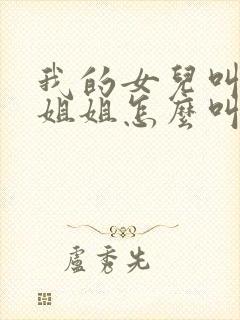 我的女兒叫
姐姐怎麼叫
盧秀先